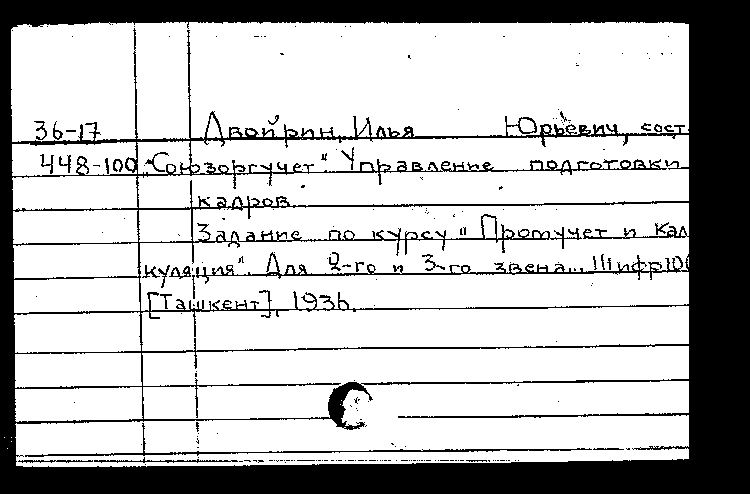 36-17 Двойрин, Илья Юрьевич, сост.
448-100 "Союзоргучет". Управление подготовки
кадров
Задание по курсу "Промучет и кал
куляция". Для 2-го и 3-го звена... Шифр 100
[Ташкент], 1936.